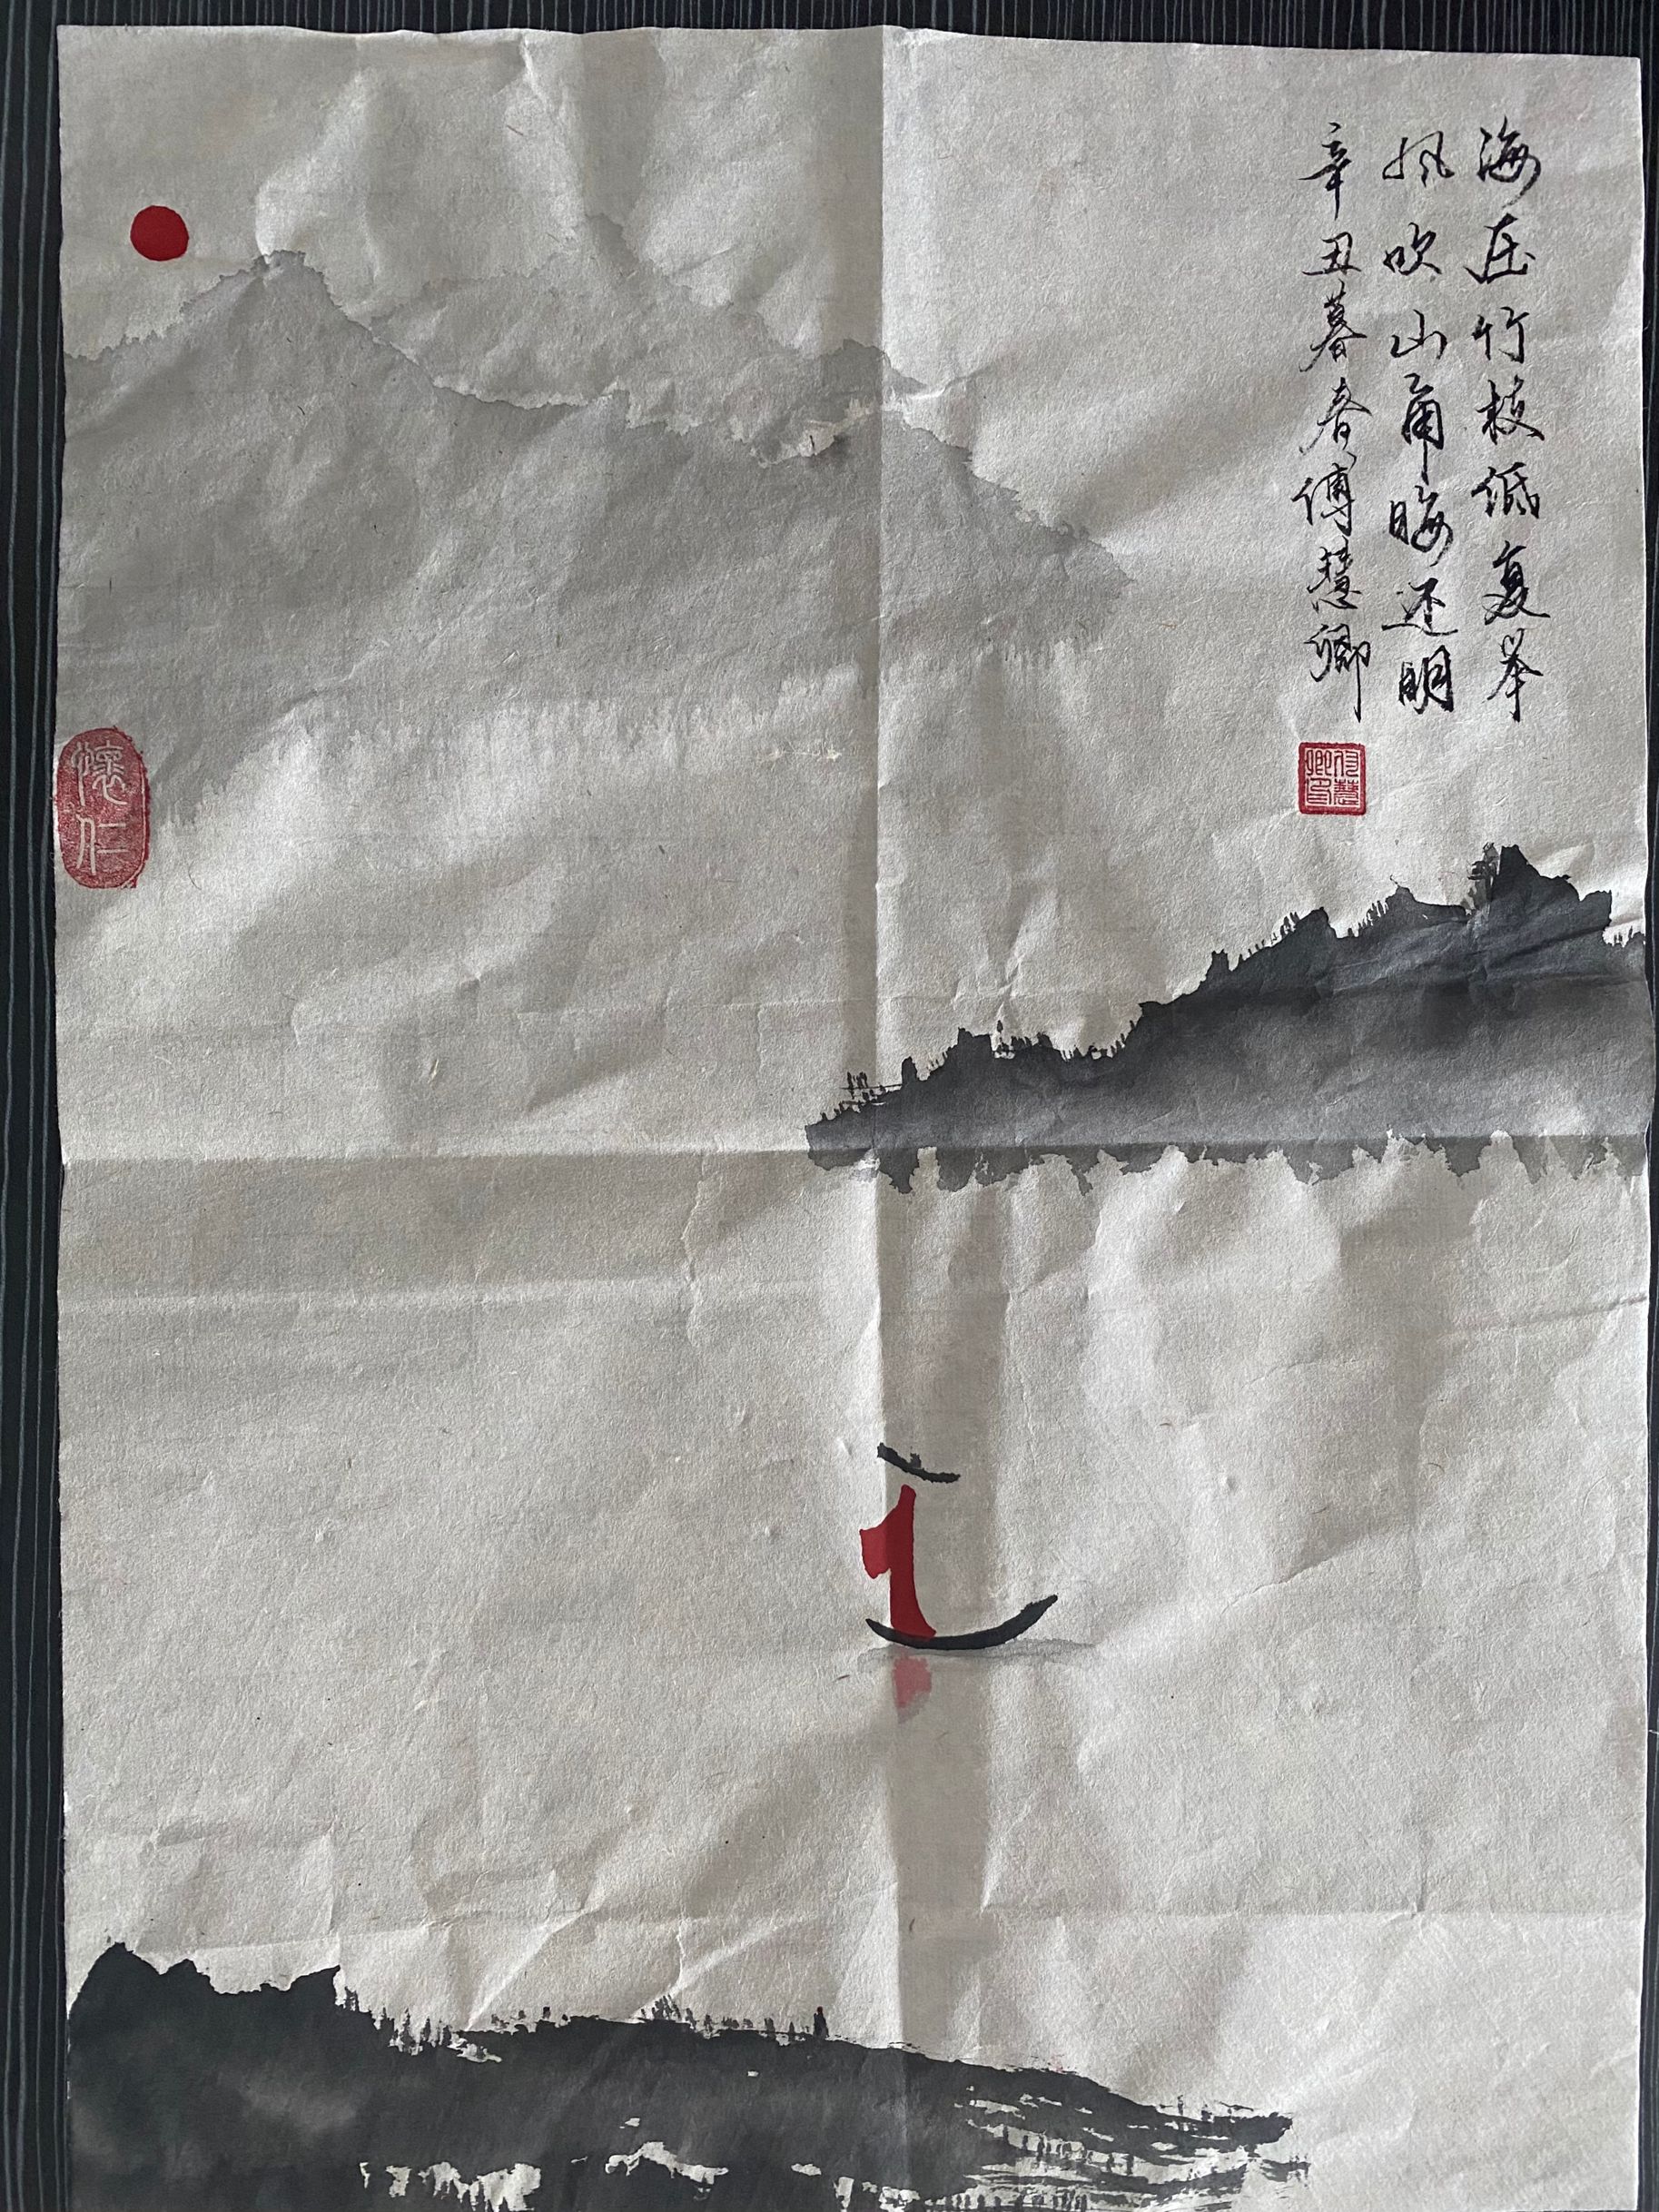 海压竹枝低复举
风吹山角晦还明
辛丑暮春傅慧卿
懷仁